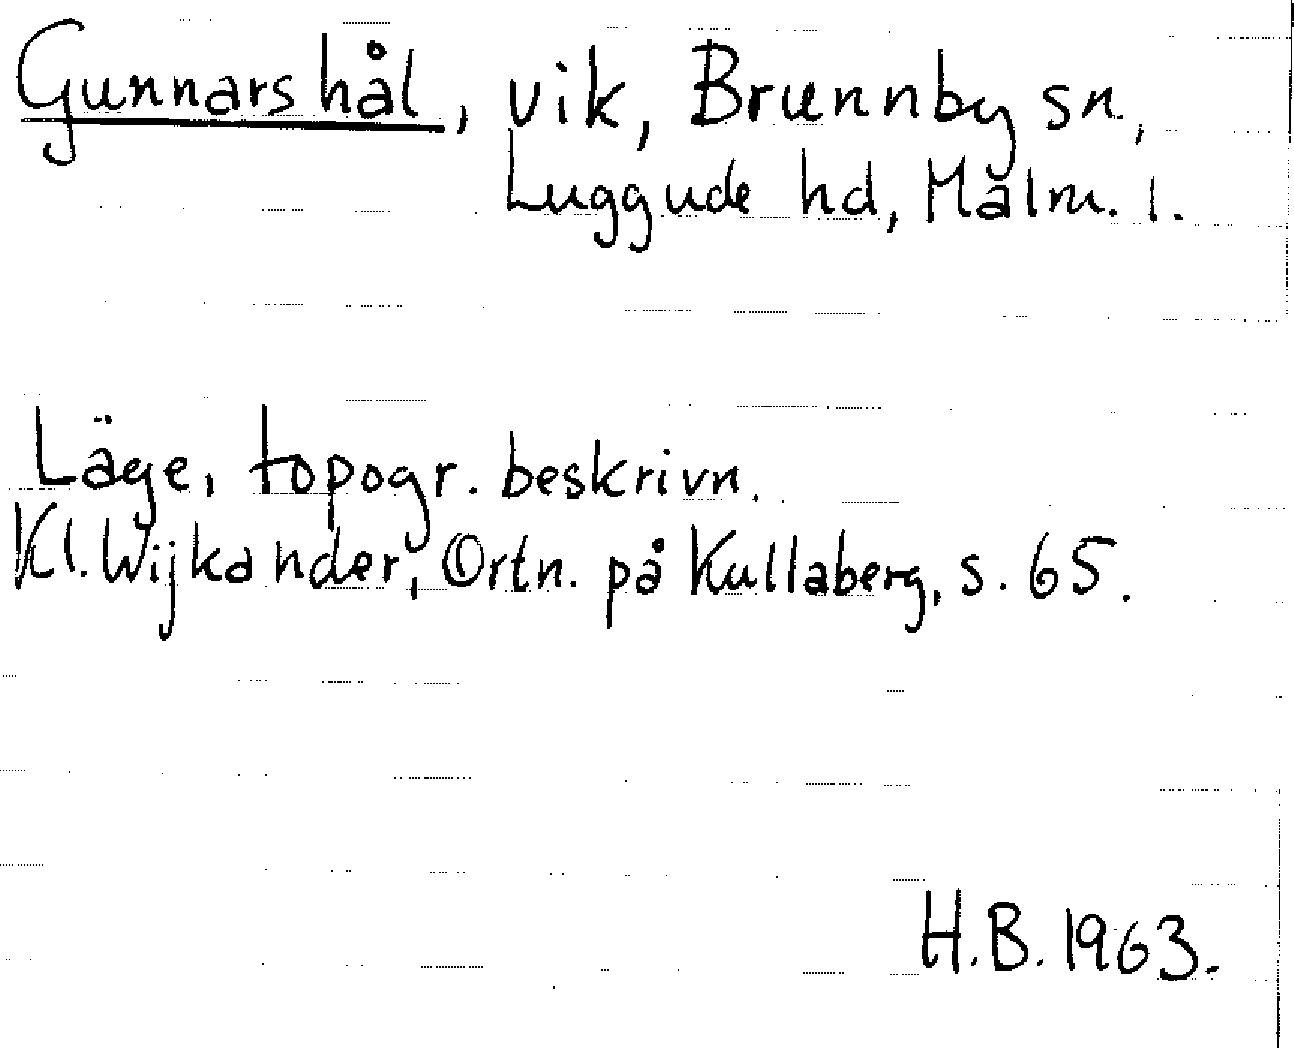 Gunnarshål, vik, Brunnby sn,
Luggude hd, Malm. l.
Läge, topogr. beskrivn.
Kl. Wijkander, Ortn. på Kullaberg, s. 65.
H.B. 1963.